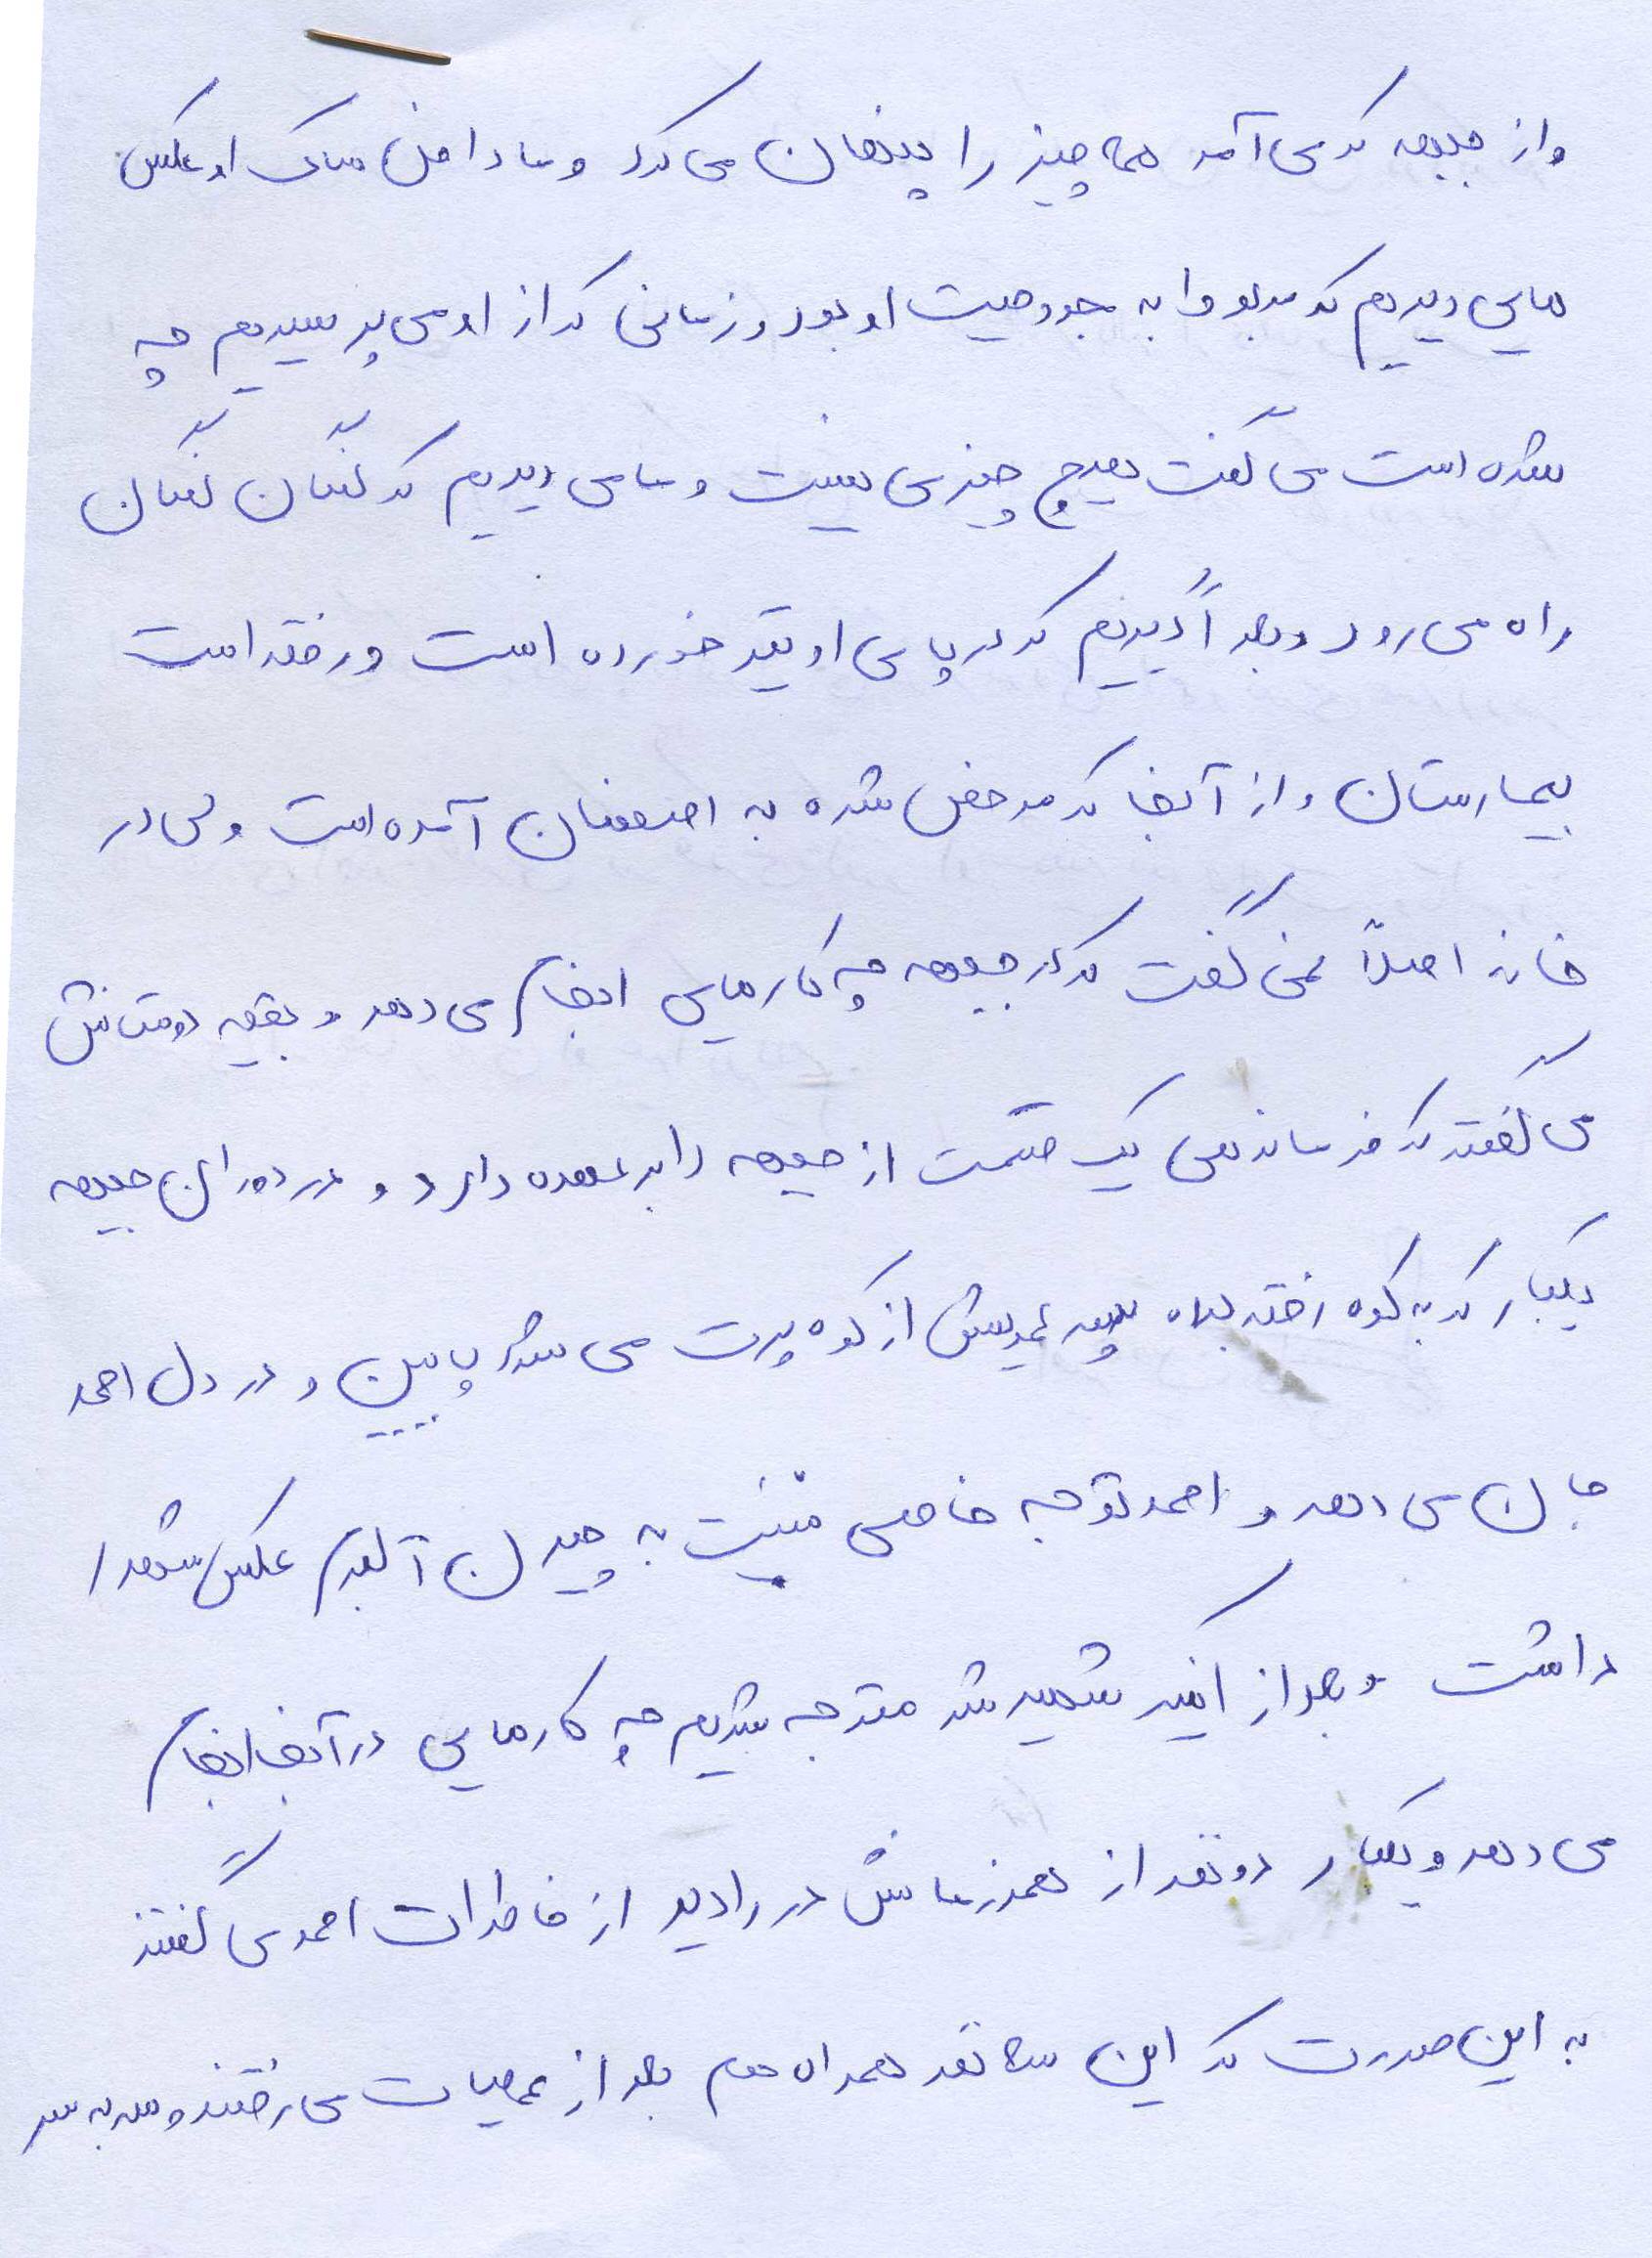 و از جبهه که می آمد همه چیز را پنهان می کرد و ما داخل ساک او عکس
هایی دیدیم که مربوط به مجروحیت او بود و زمانی که از او می پرسیدیم چه
شده است می گفت هیچ چیزی نیست و ما می دیدیم که لنگان لنگان
راه می رود و بعداً دیدیم که در پای او تیر خورده است و رفته است
بیمارستان و از آنجا که مرخص شده به اصفهان آمده است ولی در
خانه اصلاً نمی گفت که در جبهه چه کارهایی انجام می دهد و بقیه دوستانش
می گفتند که فرماندهی یک قسمت از جبهه را بر عهده دارد و در دوران جبهه
یکبار که به کوه رفته بود پسر عمویش از کوه پرت می شد پایین و در دل احمد
جان می دهد و احمد توجه خاصی نسبت به چیدن آلبوم عکس شهدا
داشت و بعد از اینکه شهید شد متوجه شدیم چه کارهایی در آنجا انجام
می دهد و یکبار دو نفر از همرزمانش در رادیو از خاطرات احمد می گفتند
به این صورت که این سه نفر همراه هم بعد از عملیات می رفتند و سر به سر